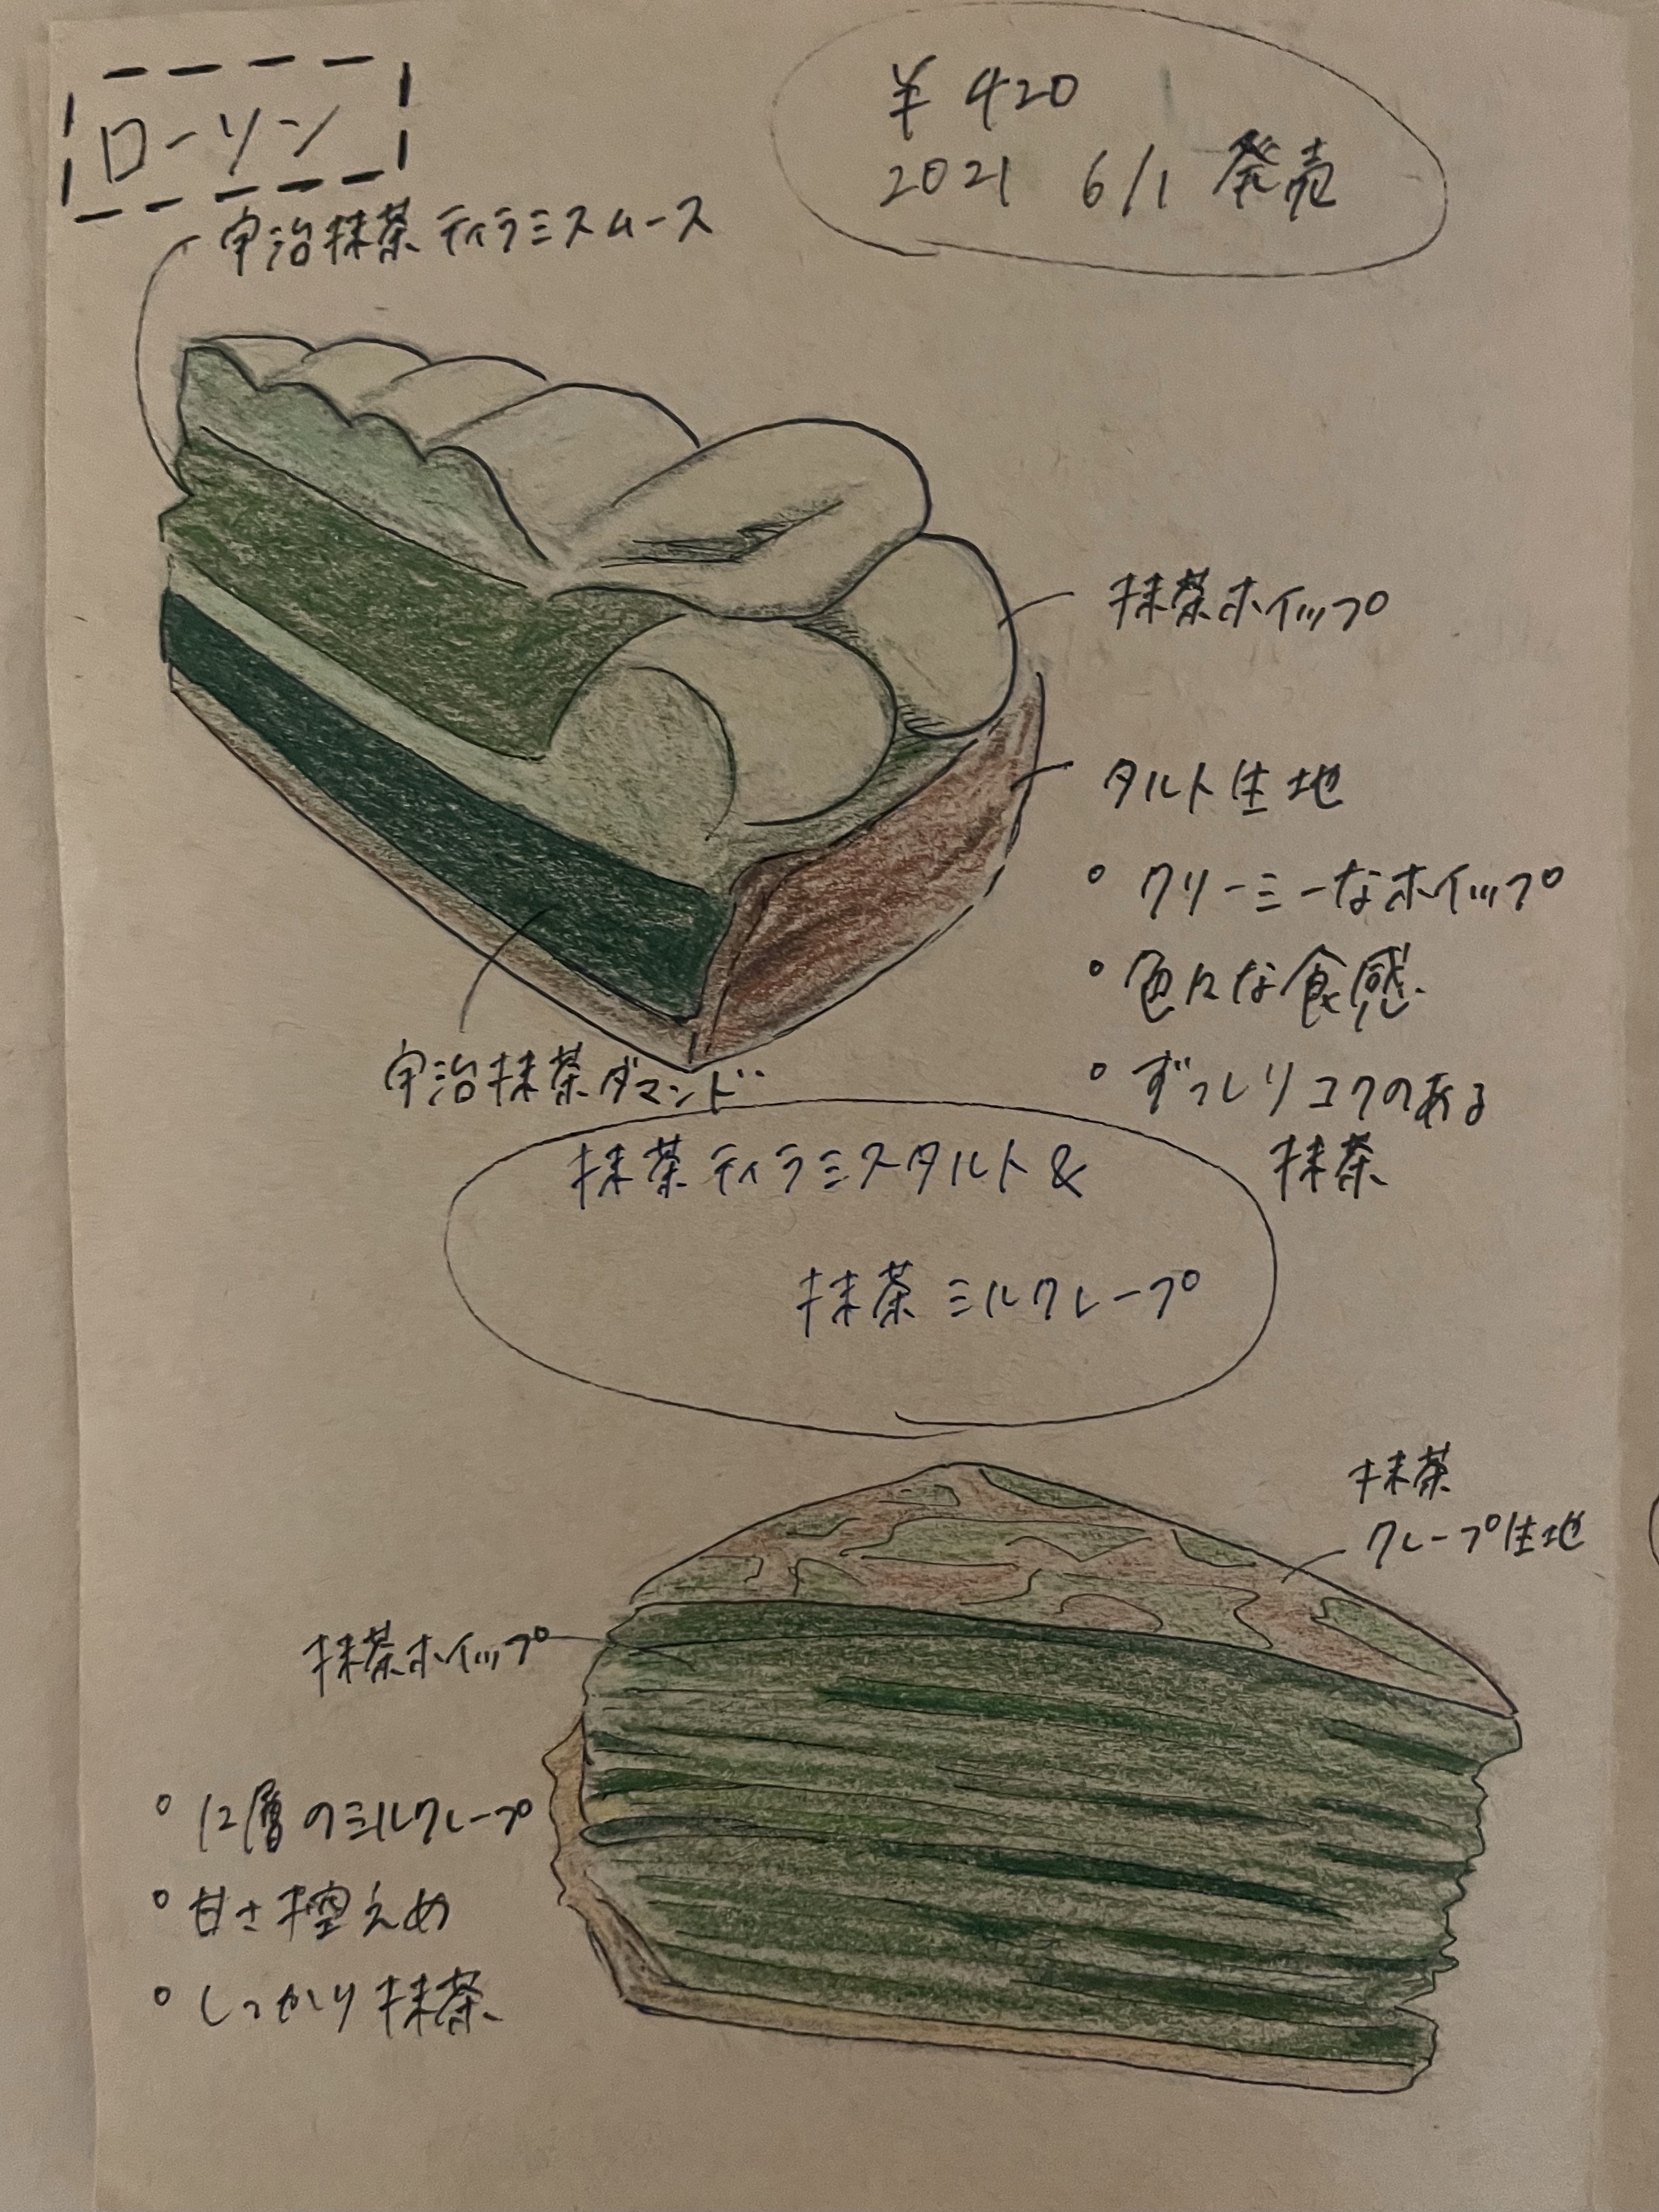 ローソン
¥420
2021 6/1 発売
宇治抹茶ティラミスムース
抹茶ホイップ
タルト生地
。クリーミーなホイップ
。色々な食感
。ずっしりコクのある
抹茶
宇治抹茶ダマンド
抹茶ティラミスタルト&
抹茶ミルクレープ
抹茶
クレープ生地
抹茶ホイップ
。12層のミルクレープ
。甘さ控えめ
。しっかり抹茶